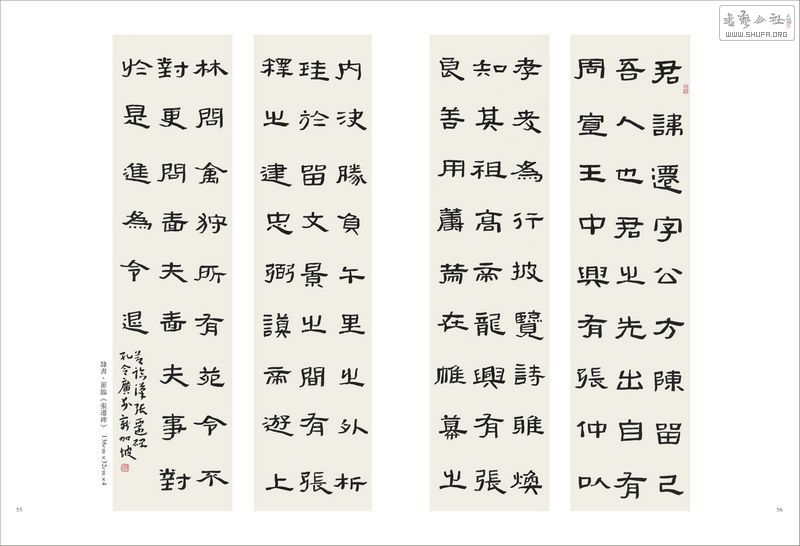 書藝公社
WWW.SHUFA.ORG
君諱遷字公方陳留己
吾人也君之先出自有
周宣王中興有張仲以
孝友為行披覽詩雅煥
知其祖高帝龍興有張
良善用籌策在帷幕之
內決勝負千里之外析
珪於留文景之間有張
釋之建忠弼謨帝遊上
林問禽狩所有苑令不
對更問嗇夫嗇夫事對
於是進為令退
孔令廣於新加坡
隸書·節臨《張遷碑》 136cm×32cm×4
55
56